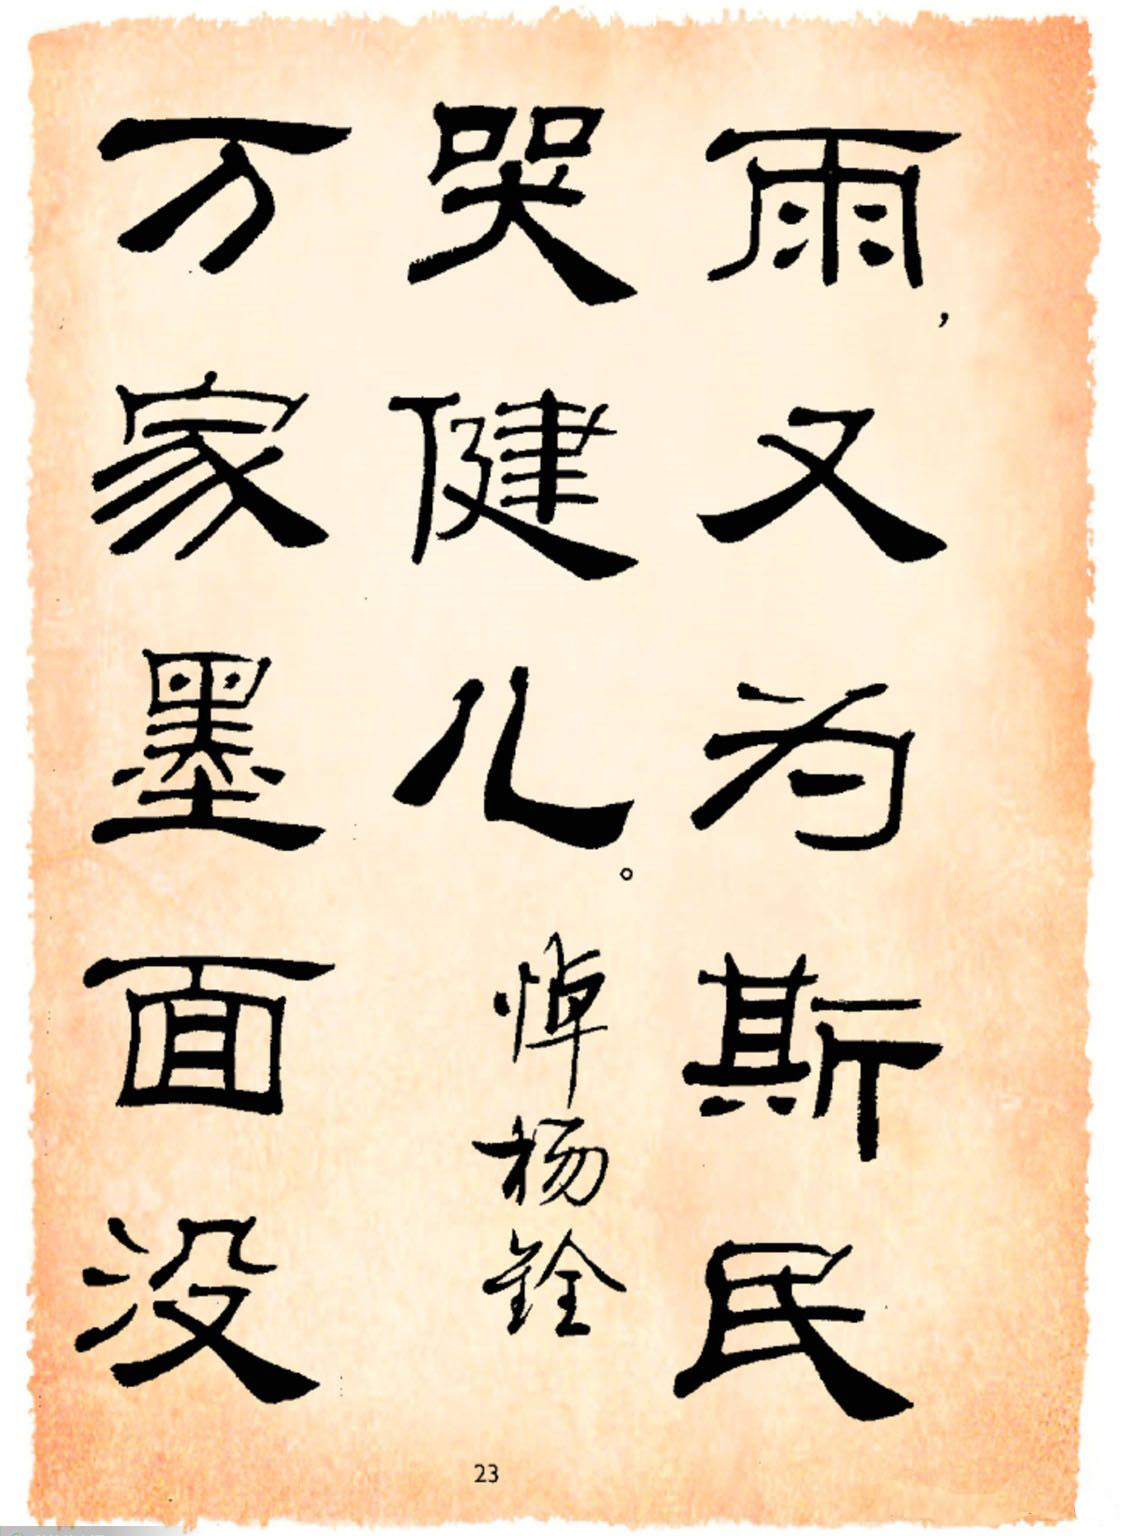 雨，又为斯民
哭健儿。
悼杨铨
万家墨面没
23